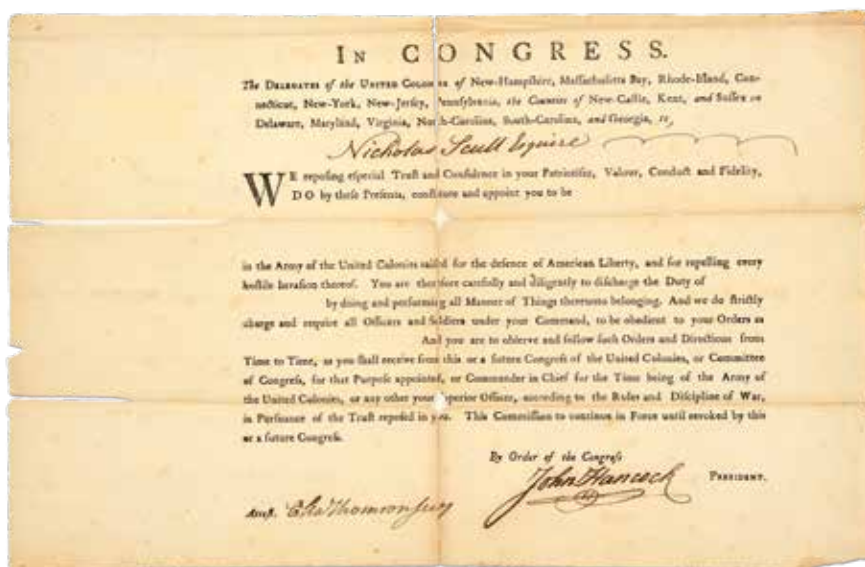 IN CONGRESS.
The DELEGATES of the UNITED COLONIES of New-Hampſhire, Maſſachuſetts Bay, Rhode-Iſland, Con-
necticut, New-York, New-Jerſey, Pennſylvania, the Counties of New-Caſtle, Kent, and Suſſex on
Delaware, Maryland, Virginia, North-Carolina, South-Carolina, and Georgia, to
Nicholas Scull Esquire
WE repoſing eſpecial Truſt and Confidence in your Patriotiſm, Valour, Conduct and Fidelity,
DO by theſe Preſents, conſtitute and appoint you to be
in the Army of the United Colonies raiſed for the defence of American Liberty, and for repelling every
hoſtile Invaſion thereof. You are therefore carefully and diligently to diſcharge the Duty of
by doing and performing all Manner of Things thereunto belonging. And we do ſtrictly
charge and require all Officers and Soldiers under your Command, to be obedient to your Orders as
And you are to obſerve and follow ſuch Orders and Directions from
Time to Time, as you ſhall receive from this or a future Congreſs of the United Colonies, or Committee
of Congreſs, for that Purpoſe appointed, or Commander in Chief for the Time being of the Army of
the United Colonies, or any other your ſuperior Officer, according to the Rules and Diſcipline of War,
in Purſuance of the Truſt repoſed in you. This Commiſſion to continue in Force until revoked by this
or a future Congreſs.
By Order of the Congreſs
John Hancock PRESIDENT.
Atteſt. Cha Thomson secy